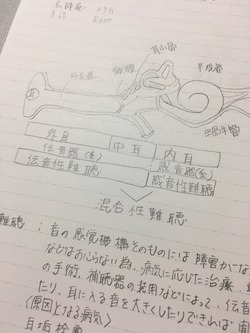 耳小骨
半規管
外耳道
鼓膜
耳
外耳
中耳
内耳
伝音器(系)
感音器(系)
伝音性難聴
感音性難聴
混合性難聴
難聴
：音の感覚機構そのものには障害がな
などはおこらない為、病気に応じた治療、
の手術、補聴器の使用などによって、伝音
たり、耳に入る音を大きくしたりできれば
(原因となる病気)
耳垢栓塞